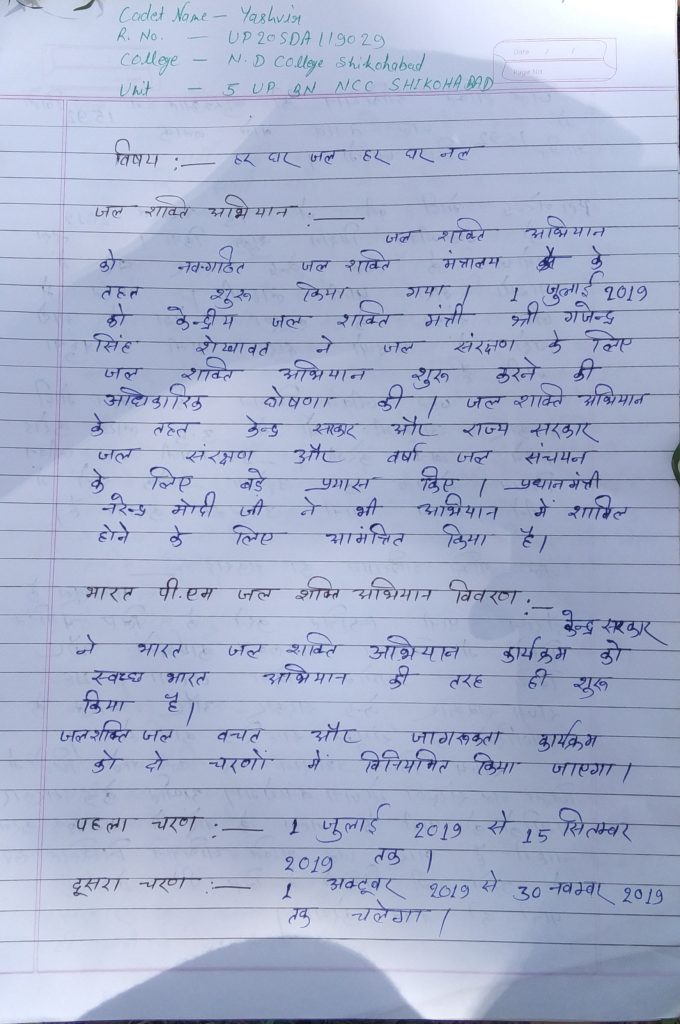 Cadet Name - Yashvir
R. No. - UP20SDA119029
College - N.D College Shikohabad
Unit - 5 UP BN NCC SHIKOHABAD
Date / /
Page No
विषय :— हर घर जल हर घर नल
जल शक्ति अभियान :—
जल शक्ति अभियान
को नवगठित जल शक्ति मंत्रालय के
तहत शुरू किया गया। 1 जुलाई 2019
को केन्द्रीय जल शक्ति मंत्री श्री गजेन्द्र
सिंह शेखावत ने जल संरक्षण के लिए
जल शक्ति अभियान शुरू करने की
अधिकारिक घोषणा की। जल शक्ति अभियान
के तहत केन्द्र सरकार और राज्य सरकार
जल संरक्षण और वर्षा जल संचयन
के लिए बडे प्रयास किए। प्रधानमंत्री
नरेन्द्र मोदी जी ने भी अभियान में शामिल
होने के लिए आमंत्रित किया है।
भारत पी.एम जल शक्ति अभियान विवरण :-
केन्द्र सरकार
ने भारत जल शक्ति अभियान कार्यक्रम को
स्वच्छ भारत अभियान की तरह ही शुरू
किया है।
जलशक्ति जल वचत और जागरूकता कार्यक्रम
को दो चरणों में विनियमित किया जाएगा।
पहला चरण :— 1 जुलाई 2019 से 15 सितम्वर
2019 तक।
दूसरा चरण :— 1 अक्टूवर 2019 से 30 नवम्वर 2019
तक चलेगा।